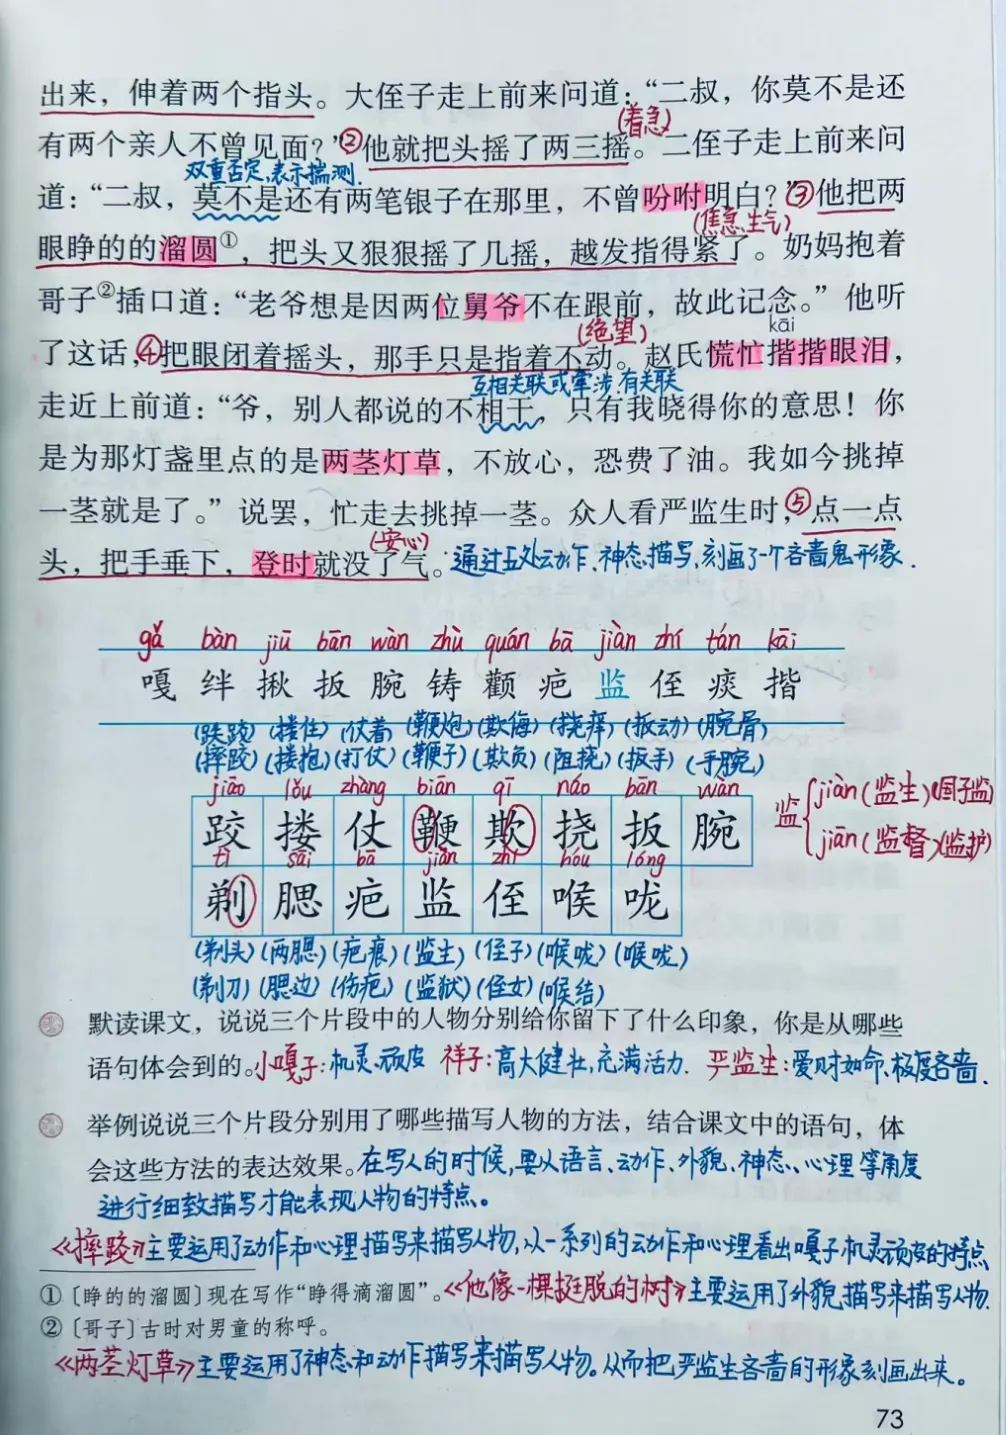 出来，伸着两个指头。大侄子走上前来问道：“二叔，你莫不是还
(着急)
有两个亲人不曾见面？”②他就把头摇了两三摇。二侄子走上前来问
双重否定,表示揣测.
道：“二叔，莫不是还有两笔银子在那里，不曾吩咐明白？”③他把两
(焦急、生气)
眼睁的的溜圆①，把头又狠狠摇了几摇，越发指得紧了。奶妈抱着
哥子②插口道：“老爷想是因两位舅爷不在跟前，故此记念。”他听
(绝望) kāi
了这话，④把眼闭着摇头，那手只是指着不动。赵氏慌忙揩揩眼泪，
互相关联或牵涉,有关联
走近上前道：“爷，别人都说的不相干，只有我晓得你的意思！你
是为那灯盏里点的是两茎灯草，不放心，恐费了油。我如今挑掉
一茎就是了。”说罢，忙走去挑掉一茎。众人看严监生时，⑤点一点
(安心)
头，把手垂下，登时就没了气。通过五处动作、神态描写,刻画了一个吝啬鬼形象.
gǎ bàn jiū bān wàn zhù quán bā jiàn zhí tán kāi
嘎 绊 揪 扳 腕 铸 颧 疤 监 侄 痰 揩
(跌跤) (搂住) (仗着) (鞭炮) (欺侮) (挠痒) (扳动) (腕骨)
(摔跤) (搂抱) (打仗) (鞭子) (欺负) (阻挠) (扳手) (手腕)
jiāo lǒu zhàng biān qī náo bān wàn
跤 搂 仗 鞭 欺 挠 扳 腕
监 jiàn(监生)(国子监)
jiān(监督)(监护)
tì sāi bā jiàn zhí hóu lóng
剃 腮 疤 监 侄 喉 咙
(剃头) (两腮) (疤痕) (监生) (侄子) (喉咙) (喉咙)
(剃刀) (腮边) (伤疤) (监狱) (侄女) (喉结)
默读课文，说说三个片段中的人物分别给你留下了什么印象，你是从哪些
语句体会到的。小嘎子:机灵、顽皮 祥子:高大健壮,充满活力. 严监生:爱财如命、极度吝啬.
举例说说三个片段分别用了哪些描写人物的方法，结合课文中的语句，体
会这些方法的表达效果。在写人的时候,要从语言、动作、外貌、神态、心理等角度
进行细致描写才能表现人物的特点。
《摔跤》主要运用了动作和心理描写来描写人物,从一系列的动作和心理看出嘎子机灵顽皮的特点
①〔睁的的溜圆〕现在写作“睁得滴溜圆”。《他像一棵挺脱的树》主要运用了外貌描写来描写人物.
②〔哥子〕古时对男童的称呼。
《两茎灯草》主要运用了神态和动作描写来描写人物。从而把严监生吝啬的形象刻画出来。
73